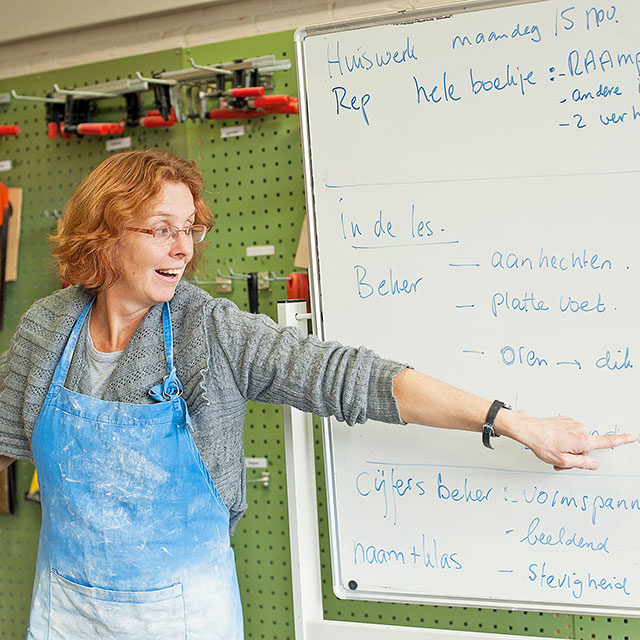 Huiswerk maandag 15 nov.
Rep hele boekje :- RAAmp
- andere
- 2 verh
in de les.
Beker - aanhechten.
- platte voet.
- oren → dik
Cijfers Beker :- vormspann
- beeldend
naam + klas - stevigheid